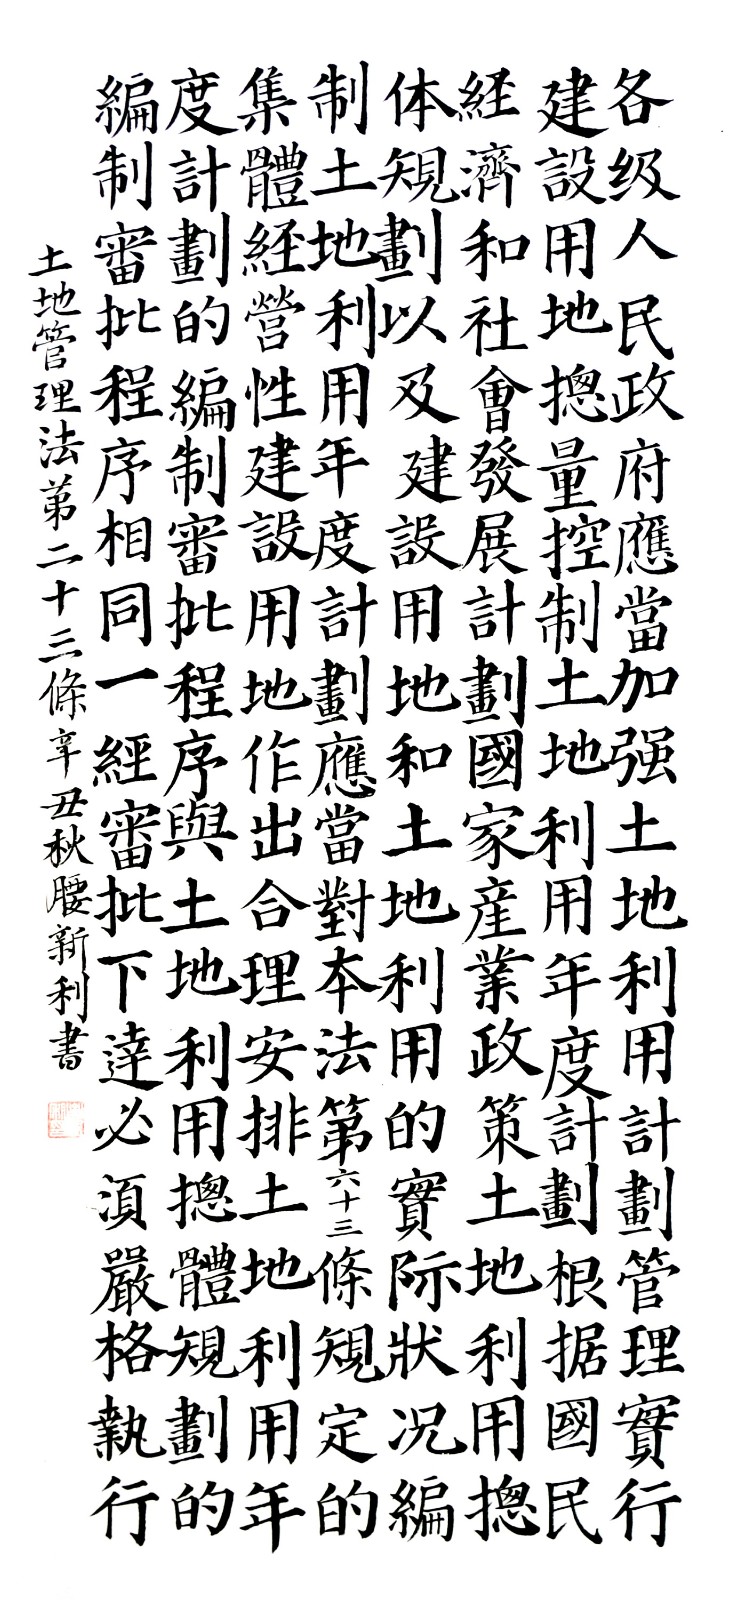 各级人民政府應當加强土地利用計劃管理實行
建設用地摠量控制土地利用年度計劃根据國民
経濟和社會發展計劃國家産業政策土地利用摠
体規劃以及建設用地和土地利用的實际狀况編
制土地利用年度計劃應當對本法第六十三條規定的
集體経營性建設用地作出合理安排土地利用年
度計劃的編制審批程序與土地利用摠體規劃的
編制審批程序相同一經審批下逹必須嚴格執行
土地管理法第二十三條辛丑秋腰新利書